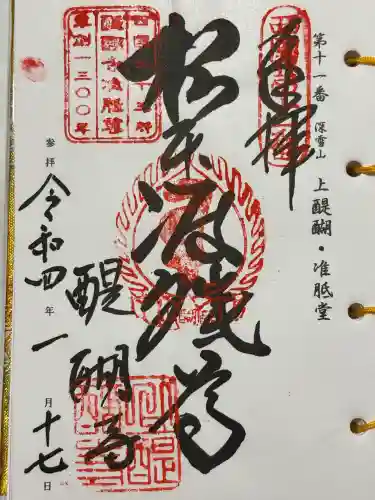 第十一番 深雪山 上醍醐・准胝堂
奉拝
根本准胝尊
醍醐寺
参拝 令和四年一月十七日
西国三十三所
草創一三〇〇年